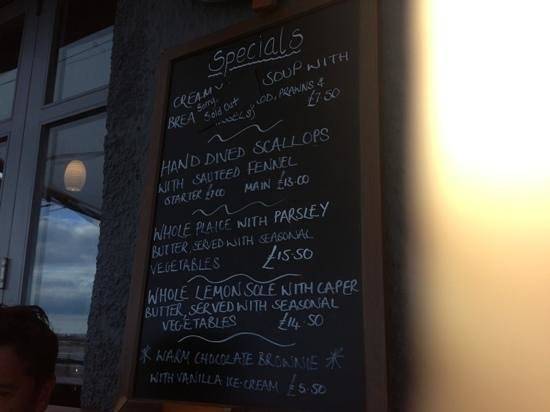 Specials
CREAMY SOUP WITH
BREA Sorry Sold Out OD, PRAWNS &
MUSSELS) £7.50
HAND DIVED SCALLOPS
WITH SAUTEED FENNEL
STARTER £7.00 MAIN £13.00
WHOLE PLAICE WITH PARSLEY
BUTTER, SERVED WITH SEASONAL
VEGETABLES £15.50
WHOLE LEMON SOLE WITH CAPER
BUTTER, SERVED WITH SEASONAL
VEGETABLES £14.50
* WARM CHOCOLATE BROWNIE *
WITH VANILLA ICE-CREAM £5.50